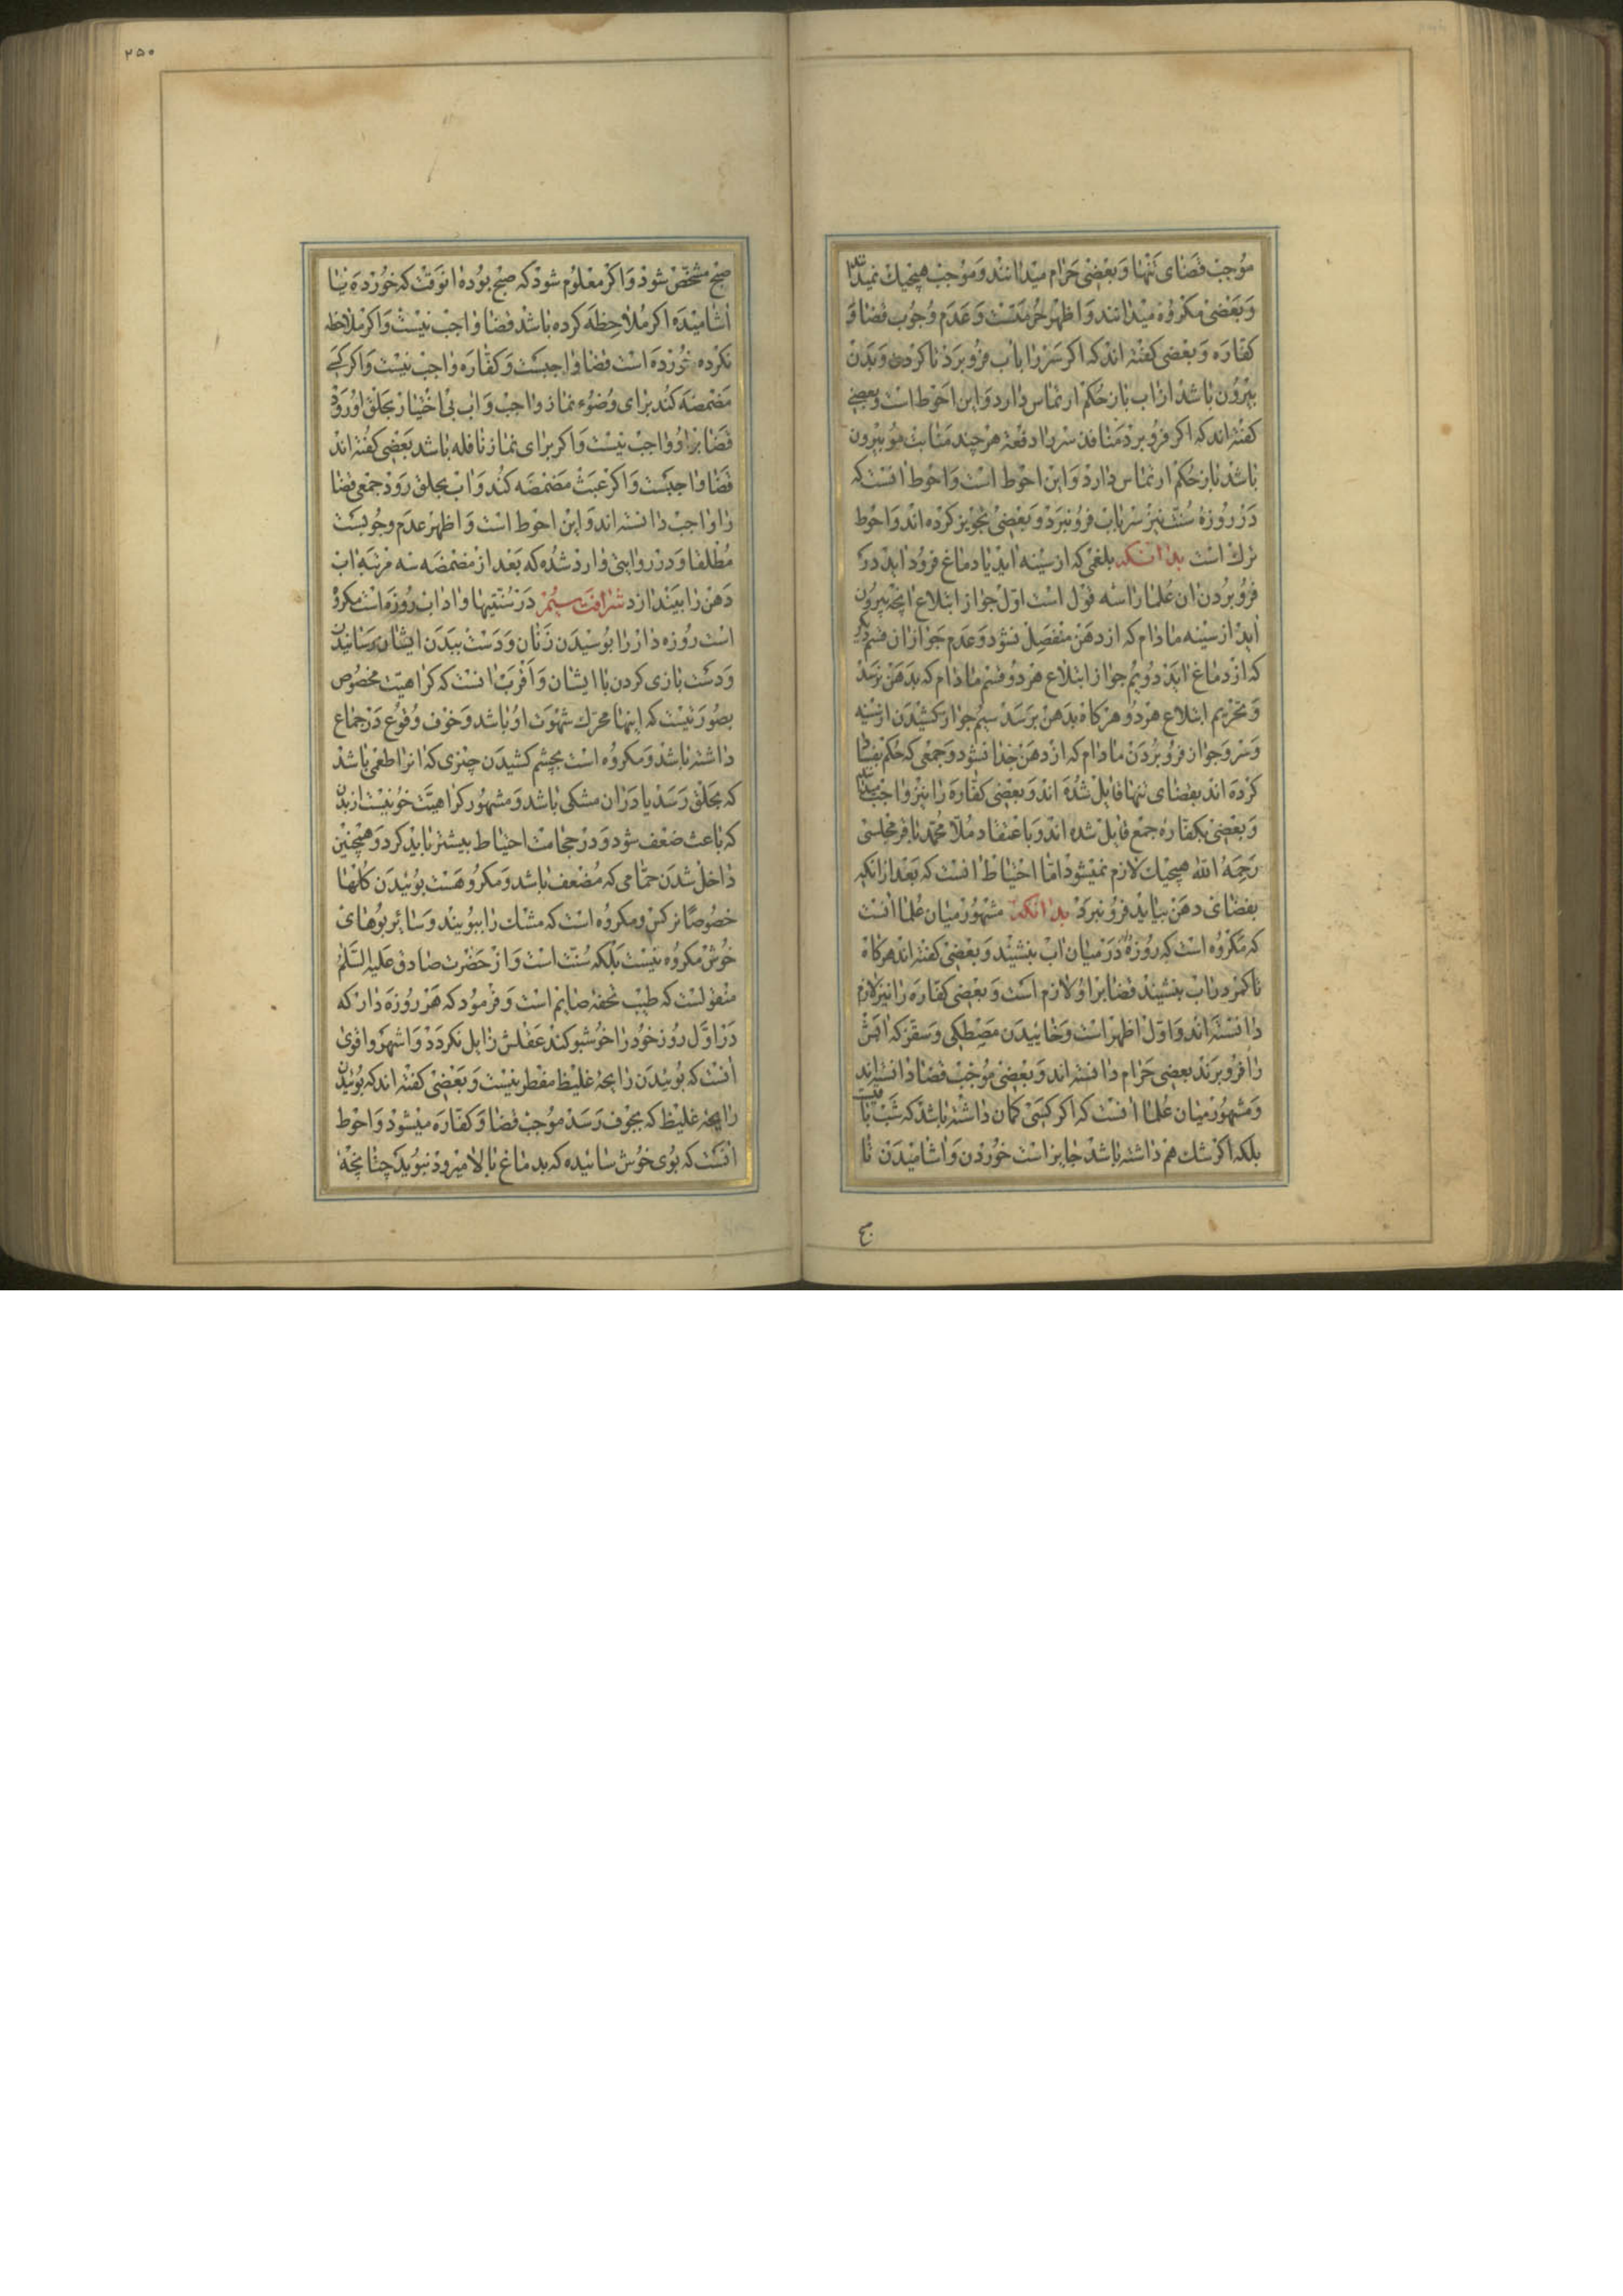 موجب قضای تنها و بعضی حرام میدانند و موجب هیچیك نمیدانند
و بعضی مکروه میدانند و اظهر حرمتست و عدم وجوب قضا و
کفاره و بعضی کفته اند که اکر سر را باب فرو برد تا کردن و بدن
بیرون باشد از اب باز حکم ارتماس دارد و این احوط است و بعضی
کفته اند که اکر فرو برد منافذ سر را دفعة هر چند منابت مو بیرون
باشد باز حکم ارتماس دارد و این احوط است و احوط انست که
در روزهٔ سنت نیز سر باب فرو نبرد و بعضی تجویز کرده اند و احوط
ترك است بدانکه بلغمی که از سینه اید یا دماغ فرود اید در
فرو بردن ان علما را سه قول است اول جواز ابتلاع انچه بیرون
اید از سینه مادام که از دهن منفصل نشود و عدم جواز ان قسم دیکر
که از دماغ اید دویم جواز ابتلاع هر دو قسم مادام که بدهن نرسد
و تحریم ابتلاع هر دو هرکاه بدهن برسد سیم جواز کشیدن از سینه
و سر و جواز فرو بردن مادام که از دهن جدا نشود و جمعی که حکم بفساد
کرده اند بقضای تنها قایل شده اند و بعضی کفاره را نیز واجب میدانند
و بعضی بکفارهٔ جمع قایل شده اند و باعتقاد ملا محمد باقر مجلسی
رحمه الله هیچیك لازم نمیشود اما احتیاط انست که بعد از انکه
بفضای دهن بیاید فرو نبرد بدانکه مشهور میان علما انست
که مکروه است که روزه در میان اب بنشیند و بعضی کفته اند هرکاه
تا کمر در اب بنشیند قضا برا و لازم است و بعضی کفاره را نیز لازم
دانسته اند و اول اظهر است و خاییدن مصطکی و سقز که ابش
را فرو برند بعضی حرام دانسته اند و بعضی موجب قضا دانسته اند
و مشهور میان علما انست که اکر کسی کمان داشته باشد که شب باقیست
بلکه اکر شك هم داشته باشد جایز است خوردن و اشامیدن تا
صبح
۲۵۰
صبح مشخص شود و اکر معلوم شود که صبح بوده انوقت که خورده یا
اشامیده اکر ملاحظه کرده باشد قضا واجب نیست و اکر ملاحظه
نکرده خورده است قضا واجبست و کفاره واجب نیست و اکر کسی
مضمضه کند برای وضوء نماز واجب و اب بی اختیار بحلق او رود
قضا برا و واجب نیست و اکر برای نماز نافله باشد بعضی کفته اند
قضا واجبست و اکر عبث مضمضه کند و اب بحلق رود جمعی قضا
را واجب دانسته اند و این احوط است و اظهر عدم وجوبست
مطلقا و در روایتی وارد شده که بعد از مضمضه سه مرتبه اب
دهن را بیندازد شرافت سیم در سنتیها و اداب روزه است مکروه
است روزه دار را بوسیدن زنان و دست ببدن ایشان رسانیدن
و دست بازی کردن با ایشان و اقرب انست که کراهیت مخصوص
بصورتیست که اینها محرك شهوت او باشد و خوف وقوع در جماع
داشته باشد و مکروه است بچشم کشیدن چیزی که انرا طعمی باشد
که بحلق رسد یا در ان مشکی باشد و مشهور کراهیت خونیست از بدن
که باعث ضعف شود و در حجامت احتیاط بیشتر باید کرد و همچنین
داخل شدن حمامی که مضعف باشد و مکروهست بوئیدن کلها
خصوصا نرکس و مکروه است که مشك را ببویند و سائر بوهای
خوش مکروه نیست بلکه سنت است و از حضرت صادق علیه السلم
منقولست که طیب تحفهٔ صایم است و فرمود که هر روزه دار که
در اول روز خود را خوشبو کند عقلش زایل نکردد و اشهر و اقوی
انست که بوئیدن رایحهٔ غلیظ مفطر نیست و بعضی کفته اند که بوئیدن
رایحهٔ غلیظ که بجوف رسد موجب قضا و کفاره میشود و احوط
انست که بوی خوش سائیده که بدماغ بالا میرود نبوید چنانچه